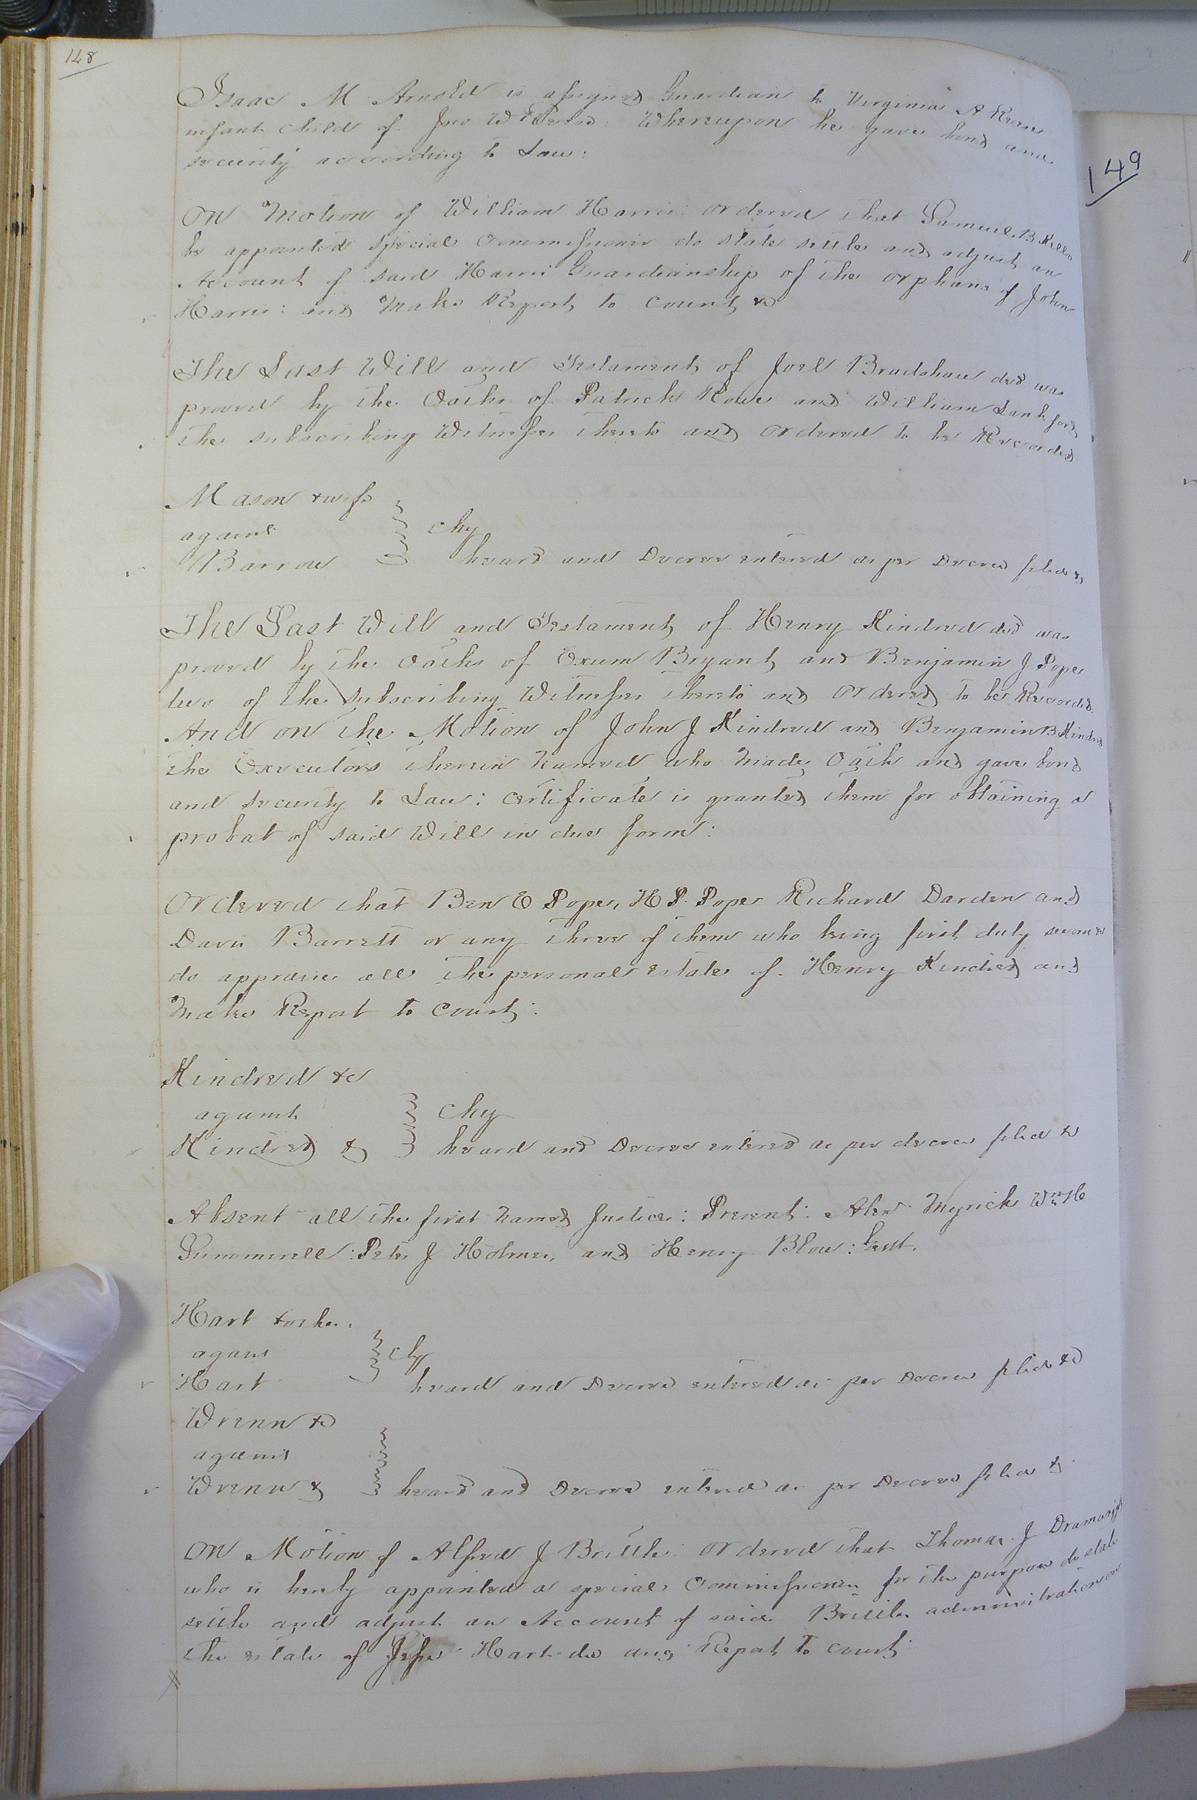 148
Isaac M Arnold is assigned Guardian to Virginia A
infant child of Jno W Whereupon he gave bond and
security according to Law:
On Motion of William Harris ordered that Samuel B
be appointed special commissioner do state settle and adjust an
Account of said Harris Guardianship of the orphans of John
Harris: and Make Report to Court &c
The Last Will and Testament of Joel Bradshaw decd was
proved by the Oaths of Patrick Rowe and William Lankford
the subscribing Witnesses thereto and ordered to be Recorded
Mason & wife
against } Chy
Barrow heard and Decree entered as per Decree filed &c
The Last Will and Testament of Henry Kindred decd was
proved by the Oaths of Exum Bryant and Benjamin J Pope
two of the subscribing Witnesses thereto and ordered to be Recorded
And on the Motion of John J Kindred and Benjamin B Kindred
the Executors therein Named who Made Oath and gave bond
and security to Law: certificate is granted them for obtaining a
probat of said Will in due form:
Ordered that Ben E Pope, H P. Pope Richard Darden and
Davis Barrett or any three of them who being first duly sworn
do appraise all the personal estate of Henry Kindred and
Make Report to Court:
Kindred &c
against } Chy
Kindred &c heard and Decree entered as per decree filed &c
Absent all the first Named Justices: Present: Alexr Myrick Wm H
Summerell: Peter J Holmes, and Henry Blow: Gent.
Hart & others
against } Chy
Hart heard and Decree entered as per Decree filed &c
Wrenn &c
against }
Wrenn &c heard and Decree entered as per Decree filed &c
On Motion of Alfred J Brittle: ordered that Thomas J Drewry
who is hereby appointed a special commissioner for the purpose do state
settle and adjust an Account of said Brittle administration on
the estate of Jesse Hart dec and Report to court
149